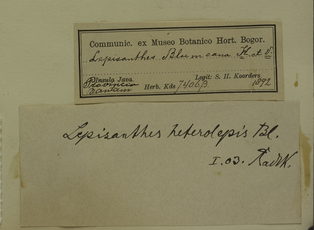 Communic. ex Museo Botanico Hort. Bogor.
Lepisanthes Blumeana K. et V.
Insula Java. Legit: S. H. Koorders
Provincia Bantam Herb. Kds 7406β 1892
Lepisanthes heterolepis Bl.
I.03. Radlk.